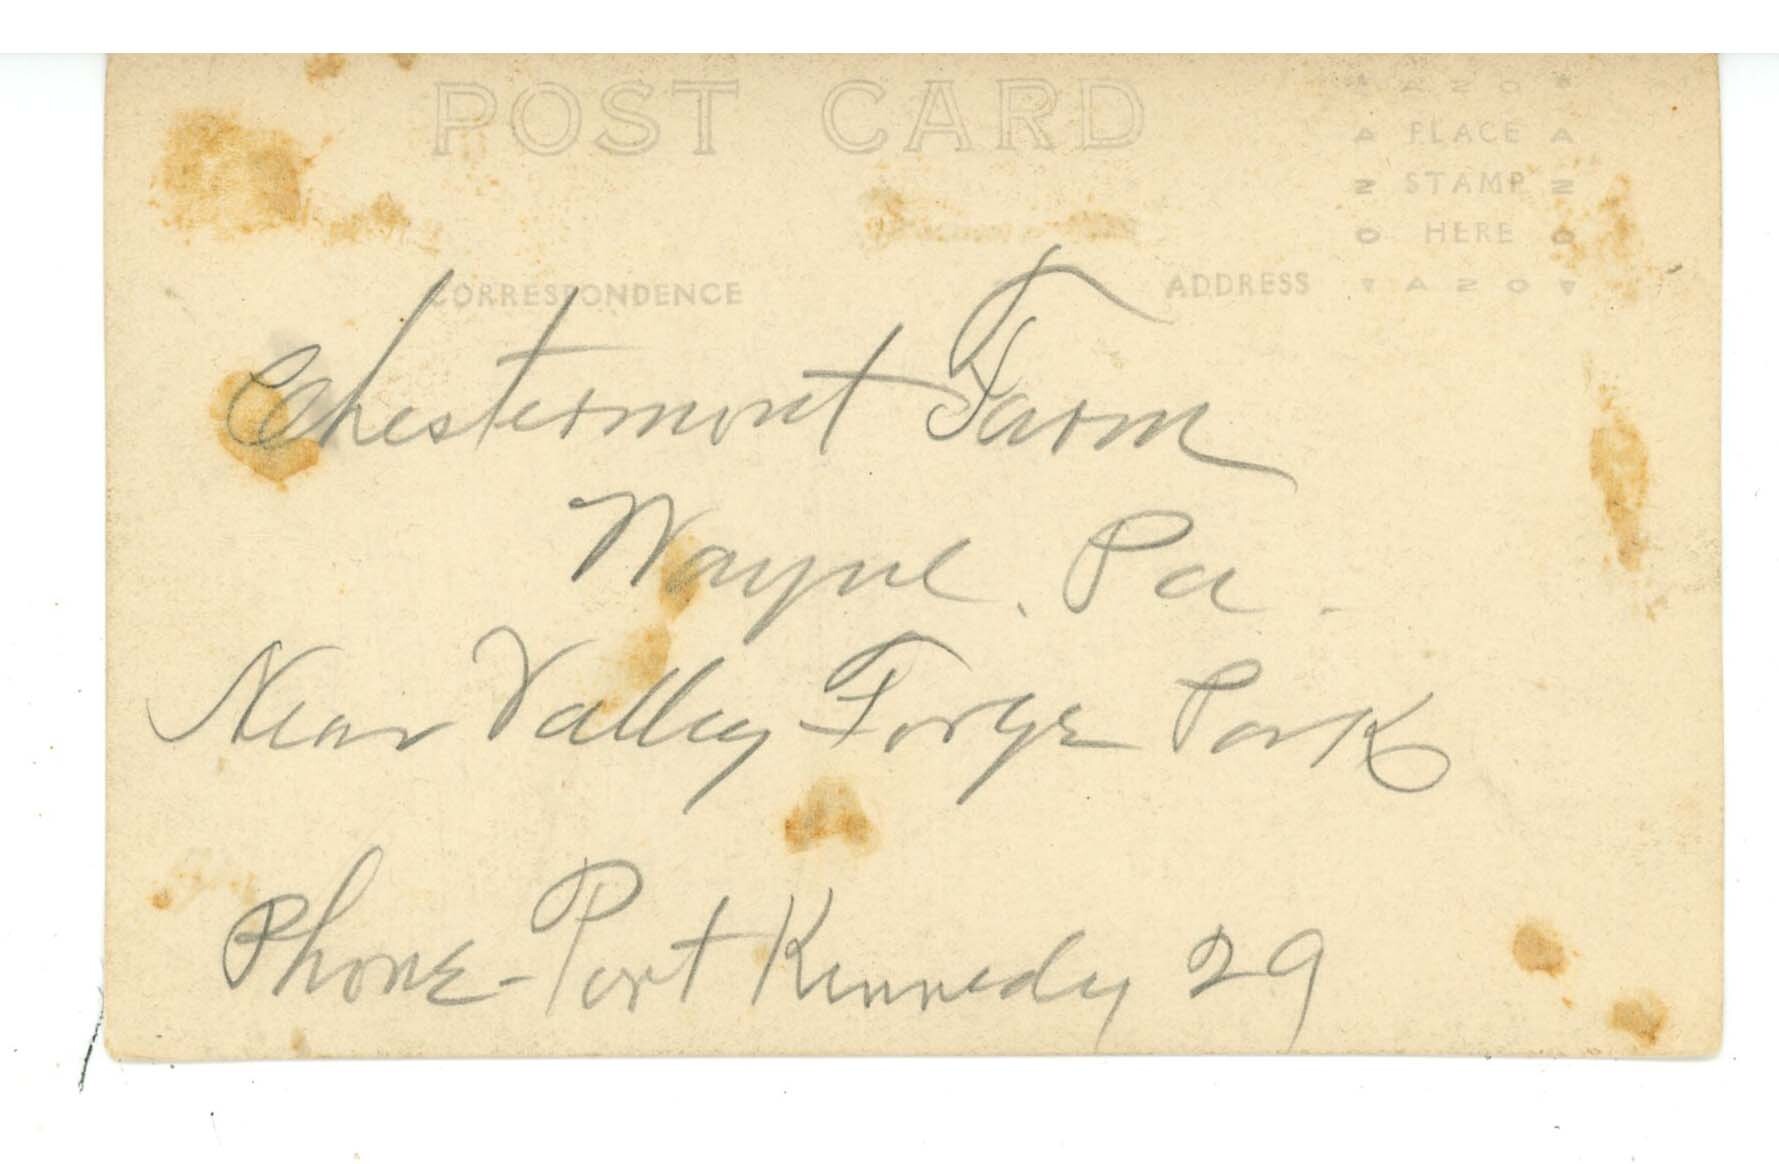 POST CARD
▲ A Z O ▲
A PLACE A
Z STAMP Z
O HERE O
▼ A Z O ▼
CORRESPONDENCE ADDRESS
Chestermont Farm
Wayne, Pa.
Near Valley Forge Park
Phone - Port Kennedy 29